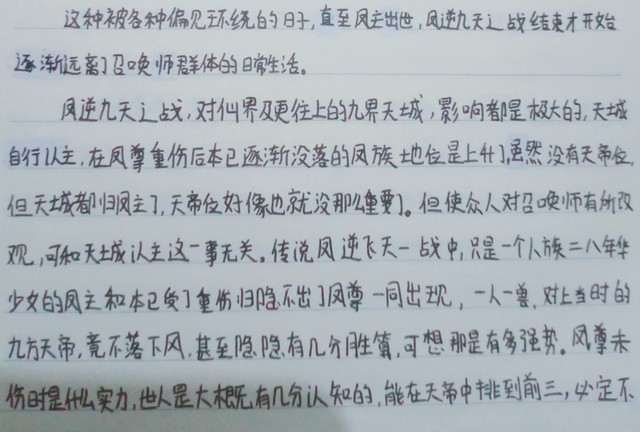 这种被各种偏见环绕的日子,直至凤主出世,凤逆九天之战结束才开始
逐渐远离了召唤师群体的日常生活。
凤逆九天之战,对仙界及更往上的九界天域,影响都是极大的,天域
自行认主,在凤尊重伤后本已逐渐没落的凤族地位是上升了,虽然没有天帝位,
但天域都归凤主了,天帝位好像也就没那么重要了。但使众人对召唤师有所改
观,可和天域认主这一事无关。传说凤逆飞天一战中,只是一个人族二八年华
少女的凤主和本已受了重伤归隐不出了凤尊一同出现,一人一兽,对上当时的
九方天帝,竟不落下风,甚至隐隐有几分胜算,可想那是有多强势。凤尊未
伤时是什么实力,世人是大概有几分认知的,能在天帝中排到前三,必定不